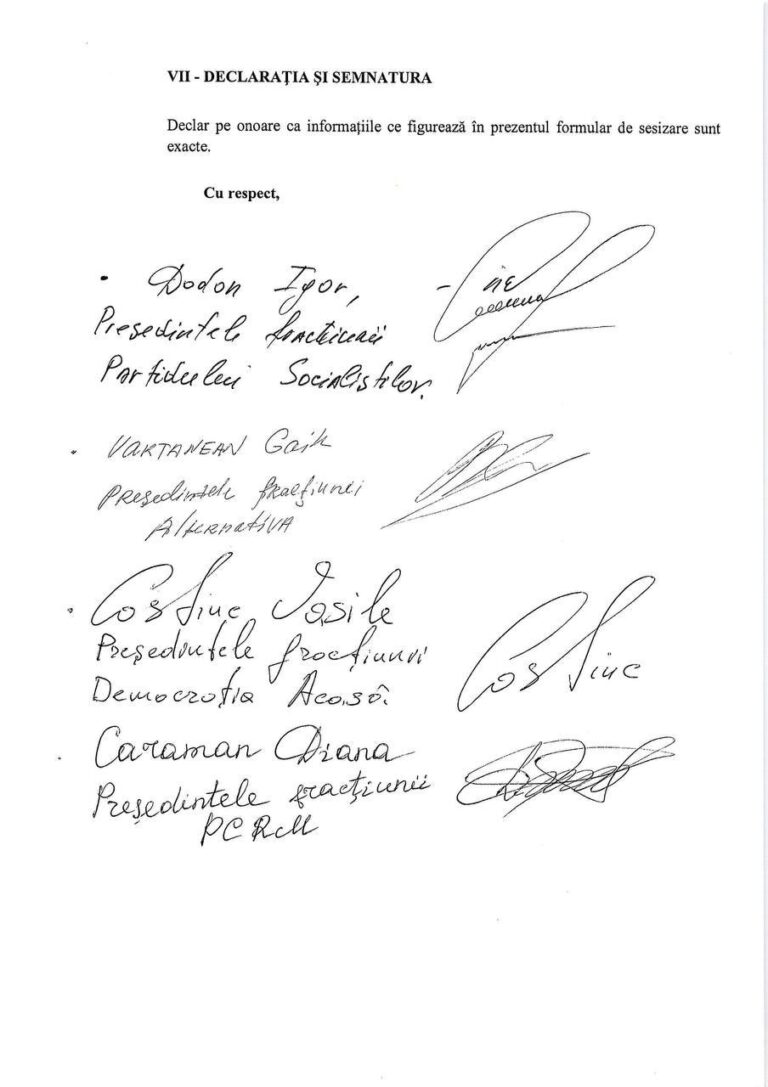 VII - DECLARAȚIA ȘI SEMNATURA
Declar pe onoare ca informațiile ce figurează în prezentul formular de sesizare sunt
exacte.
Cu respect,
Dodon Igor,
Președintele fracțiunii
Partidului Socialistilor.
VARTANEAN Gaik
Președintele fracțiunei
Alternativa
Costiuc Vasile
Președintele fracțiunii
Democrația Acasă.
Costiuc
Caraman Diana
Președintele fracțiunii
PCRM